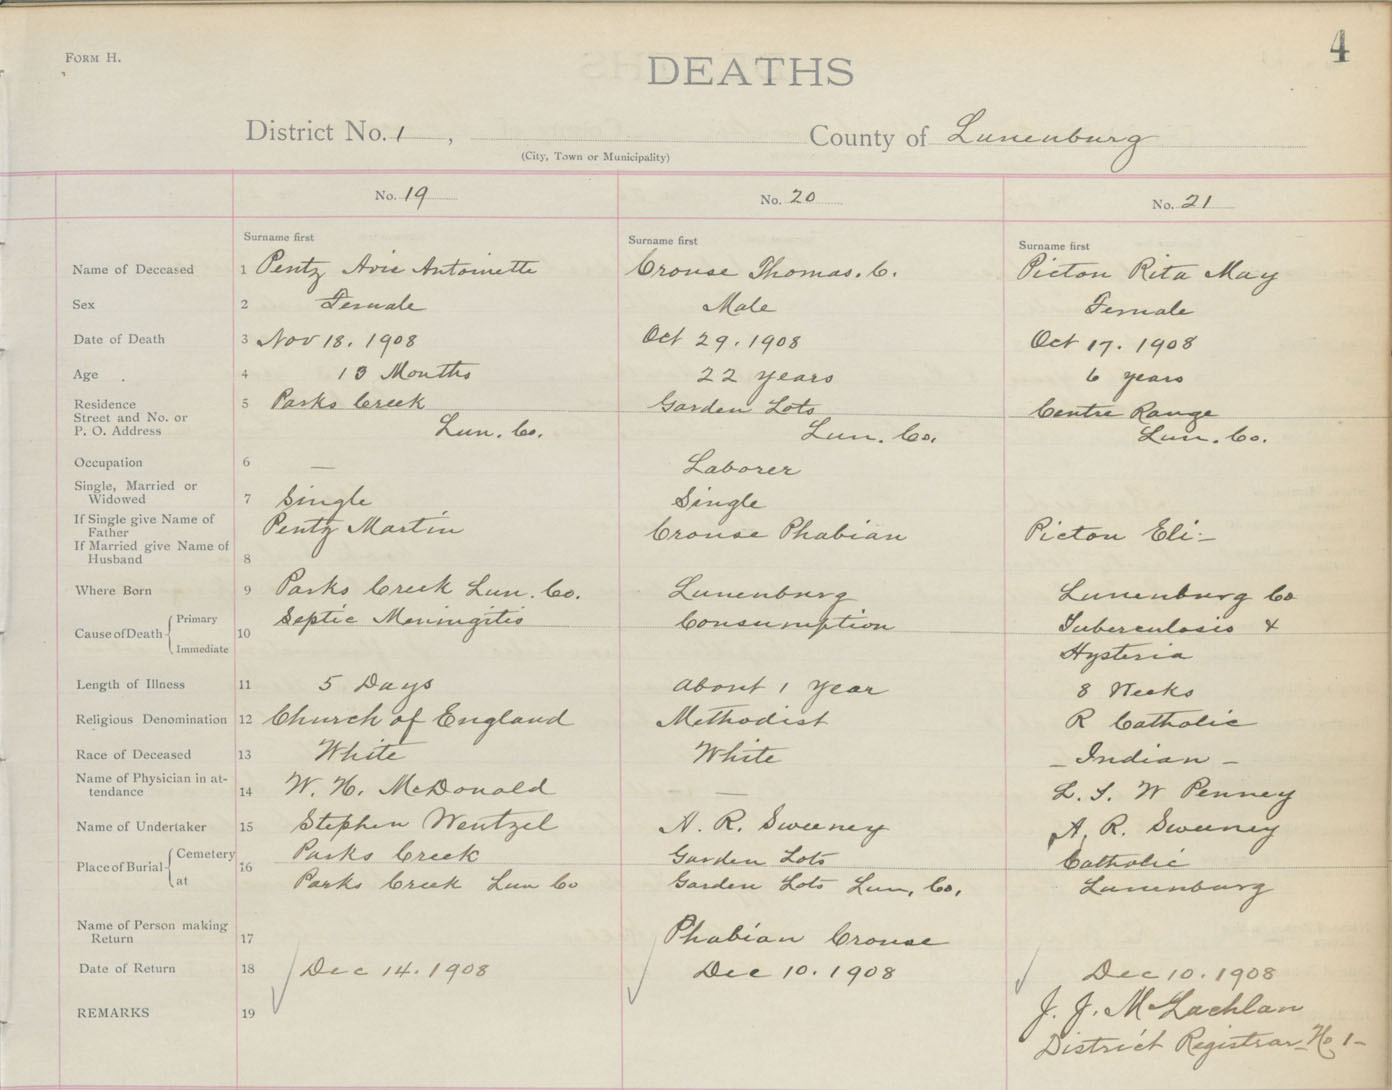 4
FORM H.
DEATHS
District No. 1, County of Lunenburg
(City, Town or Municipality)
No. 19 No. 20 No. 21
Surname first Surname first Surname first
Name of Deceased 1 Pentz Avie Antoinette Crouse Thomas. C. Picton Rita May
Sex 2 Female Male Female
Date of Death 3 Nov 18. 1908 Oct 29. 1908 Oct 17. 1908
Age 4 13 Months 22 years 6 years
Residence 5 Parks Creek Garden Lots Centre Range
Street and No. or
P. O. Address Lun. Co. Lun. Co. Lun. Co.
Occupation 6 — Laborer
Single, Married or
Widowed 7 Single Single
If Single give Name of
Father Pentz Martin Crouse Phabian Picton Eli -
If Married give Name of
Husband 8
Where Born 9 Parks Creek Lun. Co. Lunenburg Lunenburg Co
Cause of Death { Primary 10 Septic Meningitis Consumption Tuberculosis &
Immediate Hysteria
Length of Illness 11 5 Days about 1 year 8 Weeks
Religious Denomination 12 Church of England Methodist R Catholic
Race of Deceased 13 White White - Indian -
Name of Physician in at-
tendance 14 W. H. McDonald — L. S. W Penney
Name of Undertaker 15 Stephen Wentzel A. R. Sweeney A. R. Sweeney
Place of Burial { Cemetery 16 Parks Creek Garden Lots Catholic
at Parks Creek Lun Co Garden Lots Lun, Co, Lunenburg
Name of Person making
Return 17 Phabian Crouse
Date of Return 18 Dec 14. 1908 Dec 10. 1908 Dec 10. 1908
REMARKS 19 J. J. McLachlan
District Registrar - No 1 -